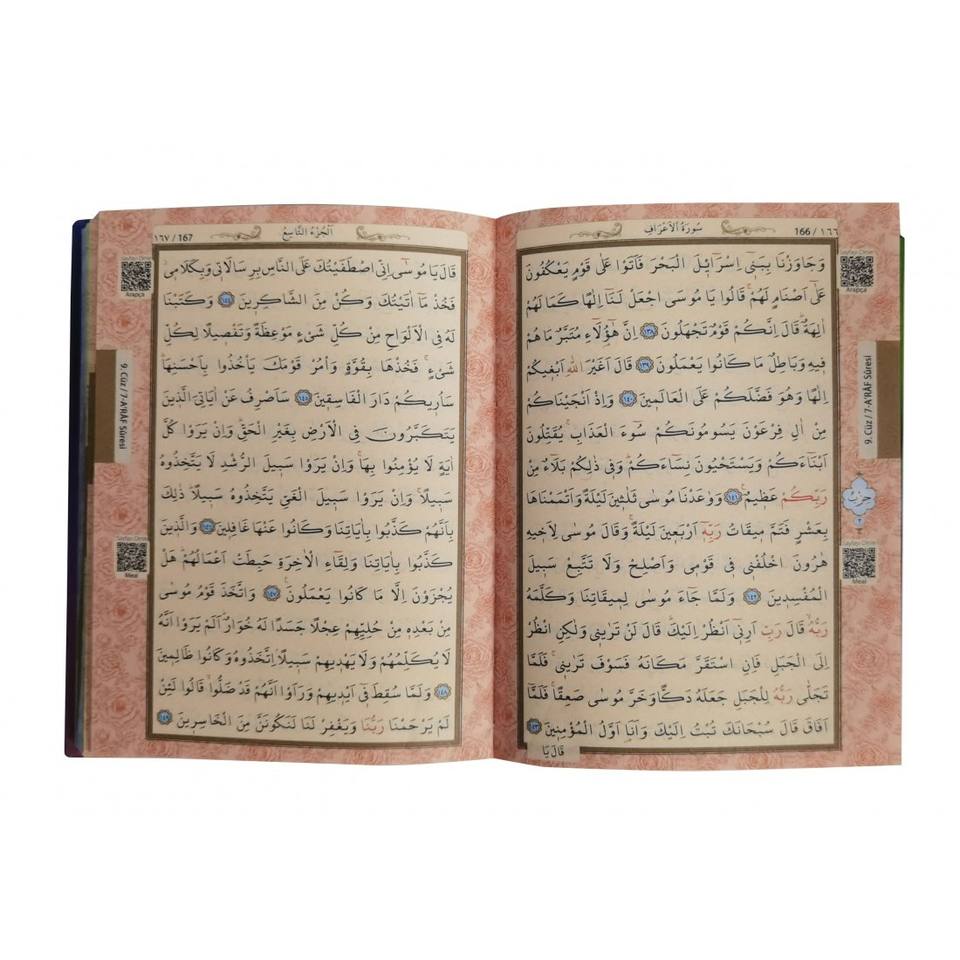 166 / ١٦٦
سُورَةُ الْاَعْرَافِ
وَجَاوَزْنَا بِبَنٖٓي اِسْرَٓائٖلَ الْبَحْرَ فَاَتَوْا عَلٰى قَوْمٍ يَعْكُفُونَ
عَلٰٓى اَصْنَامٍ لَهُمْۚ قَالُوا يَا مُوسَى اجْعَلْ لَنَٓا اِلٰهًا كَمَا لَهُمْ
اٰلِهَةٌۜ قَالَ اِنَّكُمْ قَوْمٌ تَجْهَلُونَ ١٣٨ اِنَّ هٰٓؤُ۬لَٓاءِ مُتَبَّرٌ مَا هُمْ
فٖيهِ وَبَاطِلٌ مَا كَانُوا يَعْمَلُونَ ١٣٩ قَالَ اَغَيْرَ اللّٰهِ اَبْغٖيكُمْ
اِلٰهًا وَهُوَ فَضَّلَكُمْ عَلَى الْعَالَمٖينَ ١٤٠ وَاِذْ اَنْجَيْنَاكُمْ
مِنْ اٰلِ فِرْعَوْنَ يَسُومُونَكُمْ سُٓوءَ الْعَذَابِۚ يُقَتِّلُونَ
اَبْنَٓاءَكُمْ وَيَسْتَحْيُونَ نِسَٓاءَكُمْۜ وَفٖي ذٰلِكُمْ بَلَٓاءٌ مِنْ
رَبِّكُمْ عَظٖيمٌ ١٤١ وَوٰعَدْنَا مُوسٰى ثَلٰثٖينَ لَيْلَةً وَاَتْمَمْنَاهَا
بِعَشْرٍ فَتَمَّ مٖيقَاتُ رَبِّهٖٓ اَرْبَعٖينَ لَيْلَةًۚ وَقَالَ مُوسٰى لِاَخٖيهِ
هٰرُونَ اخْلُفْنٖي فٖي قَوْمٖي وَاَصْلِحْ وَلَا تَتَّبِعْ سَبٖيلَ
الْمُفْسِدٖينَ ١٤٢ وَلَمَّا جَٓاءَ مُوسٰى لِمٖيقَاتِنَا وَكَلَّمَهُ
رَبُّهُۙ قَالَ رَبِّ اَرِنٖٓي اَنْظُرْ اِلَيْكَۜ قَالَ لَنْ تَرٰينٖي وَلٰكِنِ انْظُرْ
اِلَى الْجَبَلِ فَاِنِ اسْتَقَرَّ مَكَانَهُ فَسَوْفَ تَرٰينٖيۚ فَلَمَّا
تَجَلّٰى رَبُّهُ لِلْجَبَلِ جَعَلَهُ دَكًّا وَخَرَّ مُوسٰى صَعِقًاۚ فَلَمَّٓا
اَفَاقَ قَالَ سُبْحَانَكَ تُبْتُ اِلَيْكَ وَاَنَا۬ اَوَّلُ الْمُؤْمِنٖينَ ١٤٣
قَالَ يَا
Arapça
9. Cüz / 7-A'RÂF Sûresi
حِزْبْ
٢
Meal
اَلْجُزْءُ التَّاسِعُ
١٦٧ / 167
قَالَ يَا مُوسٰٓى اِنِّي اصْطَفَيْتُكَ عَلَى النَّاسِ بِرِسَالَاتٖي وَبِكَلَامٖي
فَخُذْ مَٓا اٰتَيْتُكَ وَكُنْ مِنَ الشَّاكِرٖينَ ١٤٤ وَكَتَبْنَا
لَهُ فِي الْاَلْوَاحِ مِنْ كُلِّ شَيْءٍ مَوْعِظَةً وَتَفْصٖيلًا لِكُلِّ
شَيْءٍۚ فَخُذْهَا بِقُوَّةٍ وَأْمُرْ قَوْمَكَ يَأْخُذُوا بِاَحْسَنِهَاۜ
سَاُر۪يكُمْ دَارَ الْفَاسِقٖينَ ١٤٥ سَاَصْرِفُ عَنْ اٰيَاتِيَ الَّذٖينَ
يَتَكَبَّرُونَ فِي الْاَرْضِ بِغَيْرِ الْحَقِّۜ وَاِنْ يَرَوْا كُلَّ
اٰيَةٍ لَا يُؤْمِنُوا بِهَاۚ وَاِنْ يَرَوْا سَبٖيلَ الرُّشْدِ لَا يَتَّخِذُوهُ
سَبٖيلًاۚ وَاِنْ يَرَوْا سَبٖيلَ الْغَيِّ يَتَّخِذُوهُ سَبٖيلًاۜ ذٰلِكَ
بِاَنَّهُمْ كَذَّبُوا بِاٰيَاتِنَا وَكَانُوا عَنْهَا غَافِلٖينَ ١٤٦ وَالَّذٖينَ
كَذَّبُوا بِاٰيَاتِنَا وَلِقَٓاءِ الْاٰخِرَةِ حَبِطَتْ اَعْمَالُهُمْۜ هَلْ
يُجْزَوْنَ اِلَّا مَا كَانُوا يَعْمَلُونَ۟ ١٤٧ وَاتَّخَذَ قَوْمُ مُوسٰى
مِنْ بَعْدِهٖ مِنْ حُلِيِّهِمْ عِجْلًا جَسَدًا لَهُ خُوَارٌۜ اَلَمْ يَرَوْا اَنَّهُ
لَا يُكَلِّمُهُمْ وَلَا يَهْدٖيهِمْ سَبٖيلًاۢ اِتَّخَذُوهُ وَكَانُوا ظَالِمٖينَ
١٤٨ وَلَمَّا سُقِطَ فٖٓي اَيْدٖيهِمْ وَرَاَوْا اَنَّهُمْ قَدْ ضَلُّواۙ قَالُوا لَئِنْ
لَمْ يَرْحَمْنَا رَبُّنَا وَيَغْفِرْ لَنَا لَنَكُونَنَّ مِنَ الْخَاسِرٖينَ ١٤٩
Arapça
9. Cüz / 7-A'RÂF Sûresi
Meal